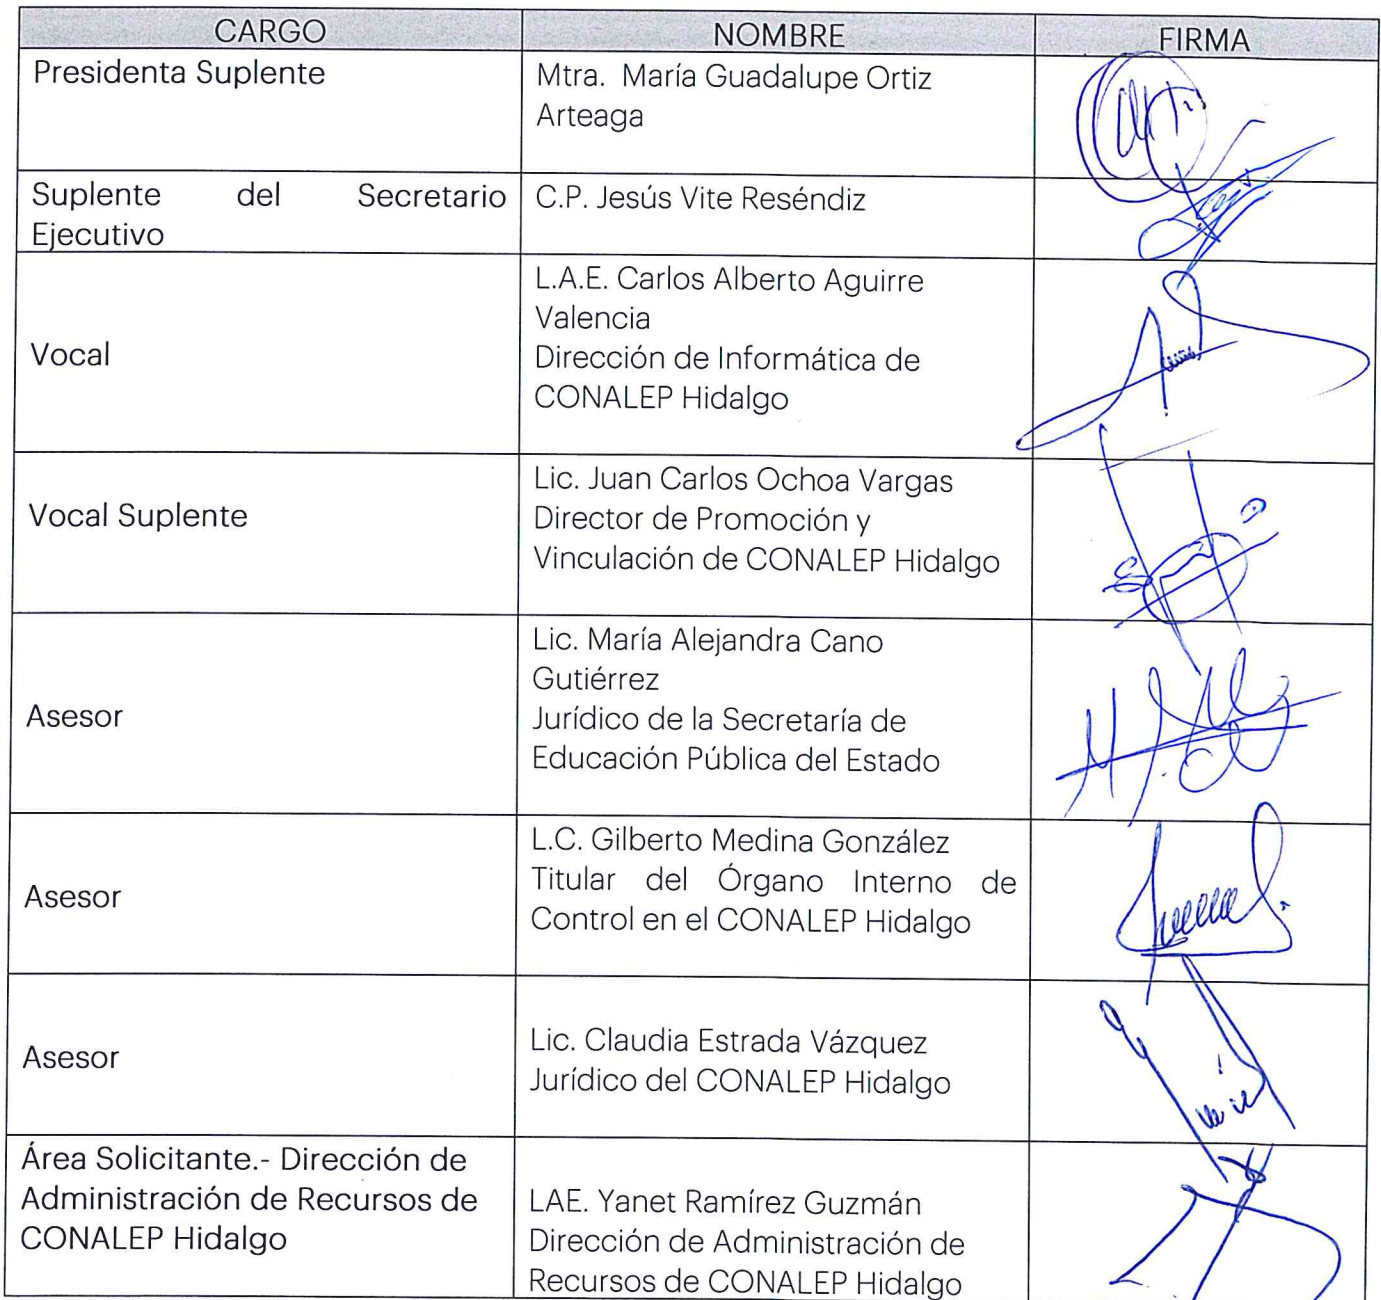 CARGO NOMBRE FIRMA
Presidenta Suplente
Mtra. María Guadalupe Ortiz
Arteaga
Suplente del Secretario
Ejecutivo
C.P. Jesús Vite Reséndiz
Vocal
L.A.E. Carlos Alberto Aguirre
Valencia
Dirección de Informática de
CONALEP Hidalgo
Vocal Suplente
Lic. Juan Carlos Ochoa Vargas
Director de Promoción y
Vinculación de CONALEP Hidalgo
Asesor
Lic. María Alejandra Cano
Gutiérrez
Jurídico de la Secretaría de
Educación Pública del Estado
Asesor
L.C. Gilberto Medina González
Titular del Órgano Interno de
Control en el CONALEP Hidalgo
Asesor
Lic. Claudia Estrada Vázquez
Jurídico del CONALEP Hidalgo
Área Solicitante.- Dirección de
Administración de Recursos de
CONALEP Hidalgo
LAE. Yanet Ramírez Guzmán
Dirección de Administración de
Recursos de CONALEP Hidalgo